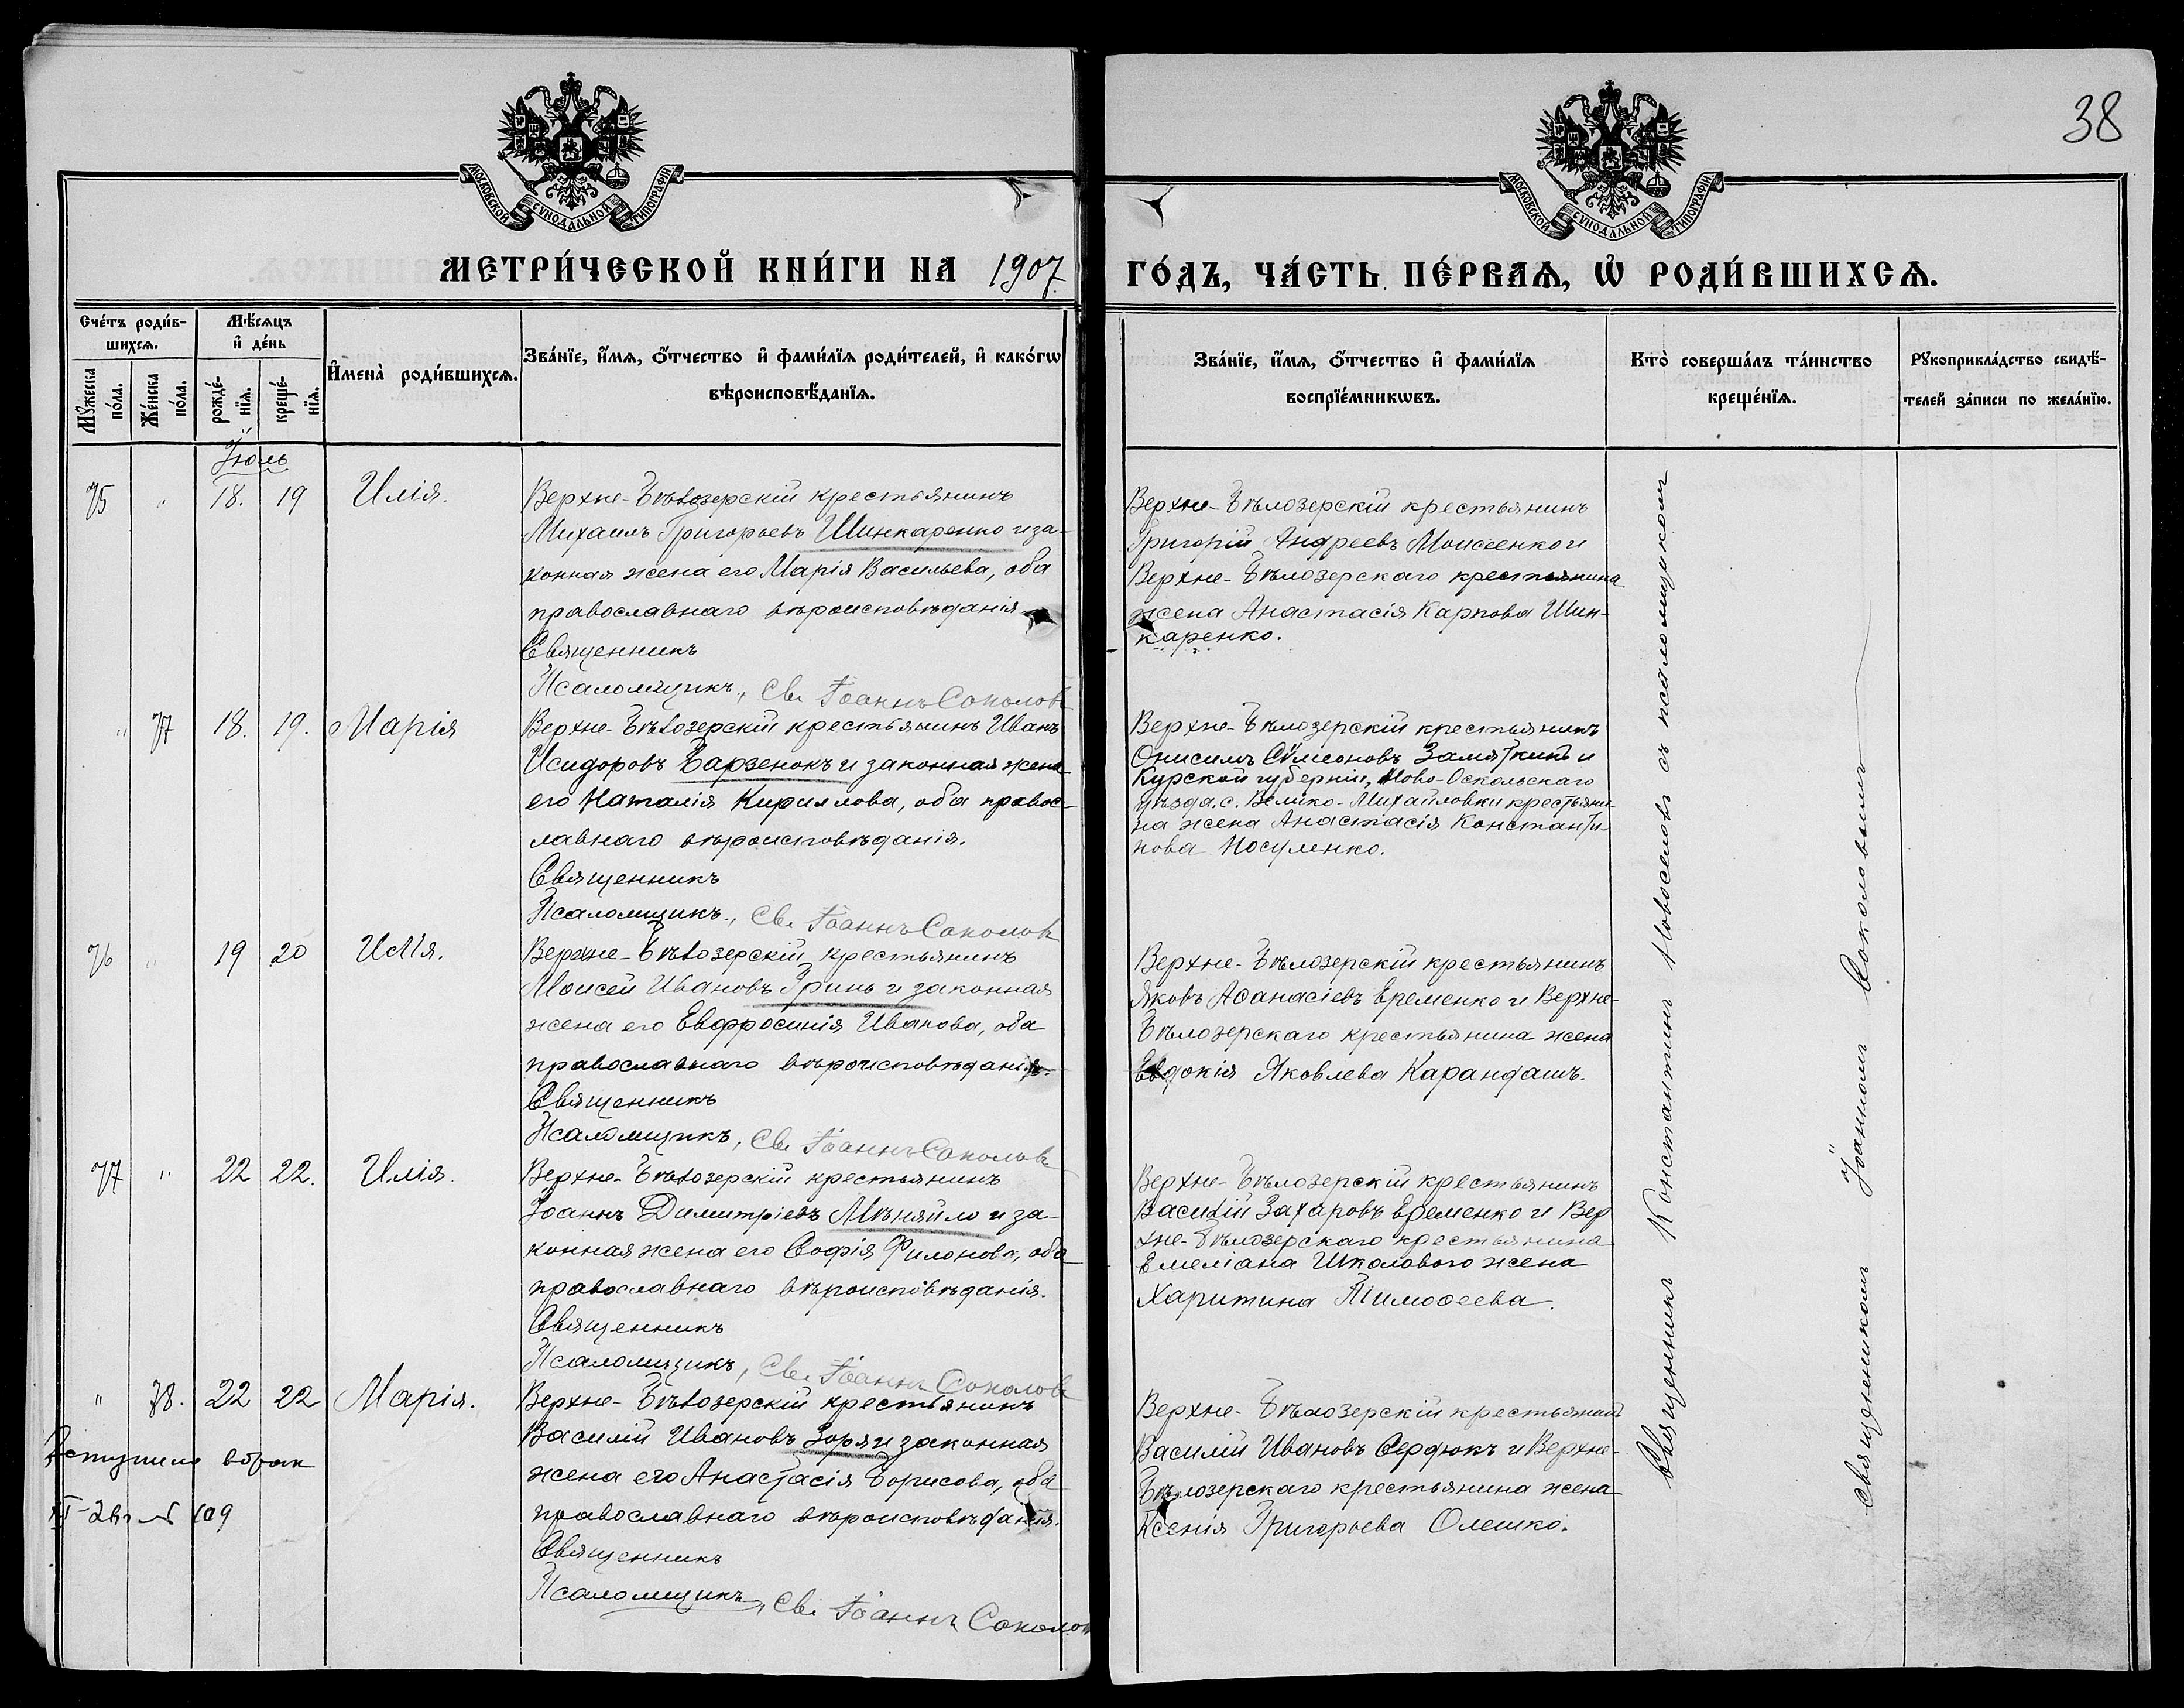 38
МОСКОВСКОЙ СѴНОДАЛЬНОЙ ТИПОГРАФІИ
МОСКОВСКОЙ СѴНОДАЛЬНОЙ ТИПОГРАФІИ
МЕТРИ́ЧЕСКОЙ КНИ́ГИ НА 1907
ГО́ДЪ, ЧА́СТЬ ПЕ́РВАѦ, Ѡ҆ РОДИ́ВШИХСѦ.
Сче́тъ роди́в-
шихсѧ.
Мꙋ́жеска по́ла.
Же́нска по́ла.
Мѣ́сѧцъ
и҆ де́нь
рожде́-
нїѧ.
креще́-
нїѧ.
И҆мена̀ роди́вшихсѧ.
Зва́нїе, и҆́мѧ, ѻ҆́тчество и҆ фами́лїѧ роди́телей, и҆ како́гѡ
вѣроисповѣ́данїѧ.
Зва́нїе, и҆́мѧ, ѻ҆́тчество и҆ фами́лїѧ
воспрїе́мникѡвъ.
Кто̀ соверша́лъ та́инство
креще́нїѧ.
Рꙋкоприкла́дство свидѣ́-
телей за́писи по жела́нїю.
Іюль
75 " 18. 19 Илія.
Верхне-Бѣлозерскій крестьянинъ
Михаилъ Григорьевъ Шинкаренко и за-
конная жена его Марія Васильева, оба
православнаго вѣроисповѣданія.
Священникъ
Псаломщикъ, Св. Іоаннъ Соколов
Верхне-Бѣлозерскій крестьянинъ
Григорій Андреевъ Моисеенко и
Верхне-Бѣлозерскаго крестьянина
жена Анастасія Карпова Шин-
каренко.
" 77 18. 19. Марія
Верхне-Бѣлозерскій крестьянинъ Иванъ
Исидоровъ Барзенокъ и законная жена
его Наталія Кириллова, оба правос-
лавнаго вѣроисповѣданія.
Священникъ
Псаломщикъ, Св. Іоаннъ Соколов
Верхне-Бѣлозерскій крестьянинъ
Онисимъ Сѵмеоновъ Замяткинъ и
Курской губерніи, Ново-Оскольскаго
уѣзда, с. Велико-Михайловки крестьяни-
на жена Анастасія Константи-
нова Носуленко.
76 " 19 20 Илія.
Верхне-Бѣлозерскій крестьянинъ
Моисей Ивановъ Гринь и законная
жена его Евфросинія Иванова, оба
православнаго вѣроисповѣданія.
Священникъ
Псаломщикъ, Св. Іоаннъ Соколов
Верхне-Бѣлозерскій крестьянинъ
Яковъ Аѳанасіевъ Еременко и Верхне-
Бѣлозерскаго крестьянина жена
Евдокія Яковлева Карандашъ.
77 " 22 22. Илія.
Верхне-Бѣлозерскій крестьянинъ
Іоаннъ Димитріевъ Мѣняйло и за-
конная жена его Софія Филонова, оба
православнаго вѣроисповѣданія.
Священникъ
Псаломщикъ, Св. Іоаннъ Соколов
Верхне-Бѣлозерскій крестьянинъ
Василій Захаровъ Еременко и Вер
хне-Бѣлозерскаго крестьянина
Емеліана Шполового жена
Харитина Тимоѳеева.
" 78. 22 22 Марія.
Верхне-Бѣлозерскій крестьянинъ
Василій Ивановъ Зоря и законная
жена его Анастасія Борисова, оба
православнаго вѣроисповѣданія.
Священникъ
Псаломщикъ, Св. Іоаннъ Соколов
Верхне-Бѣлозерскій крестьянинъ
Василій Ивановъ Сердюкъ и Верхне-
Бѣлозерскаго крестьянина жена
Ксенія Григорьева Олешко.
вбрак
Священникъ Константинъ Новоселовъ съ псаломщикомъ
священникомъ Іоанномъ Соколовымъ